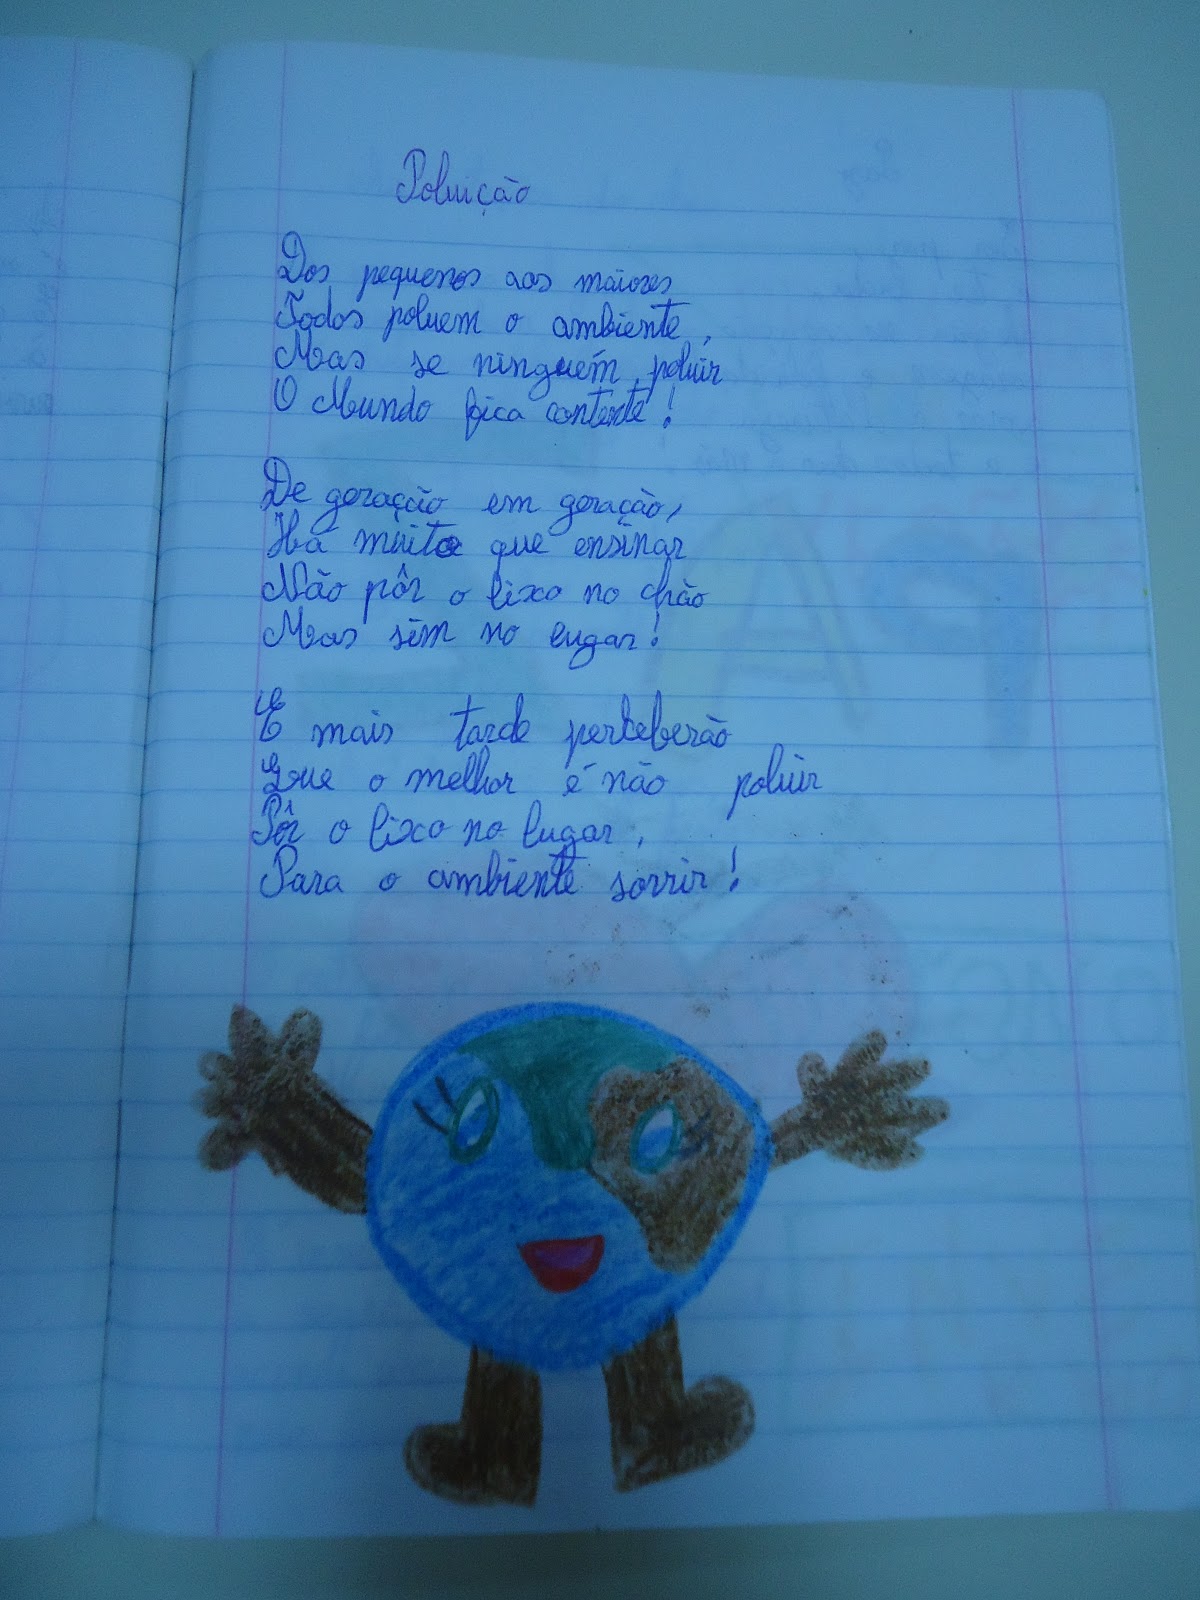 Poluição
Dos pequenos aos maiores
Todos poluem o ambiente,
Mas se ninguém poluir
O Mundo fica contente!
De geração em geração,
Há muito que ensinar
Não pôr o lixo no chão
Mas sim no lugar!
E mais tarde perceberão
Que o melhor é não poluir
Pôr o lixo no lugar,
Para o ambiente sorrir!